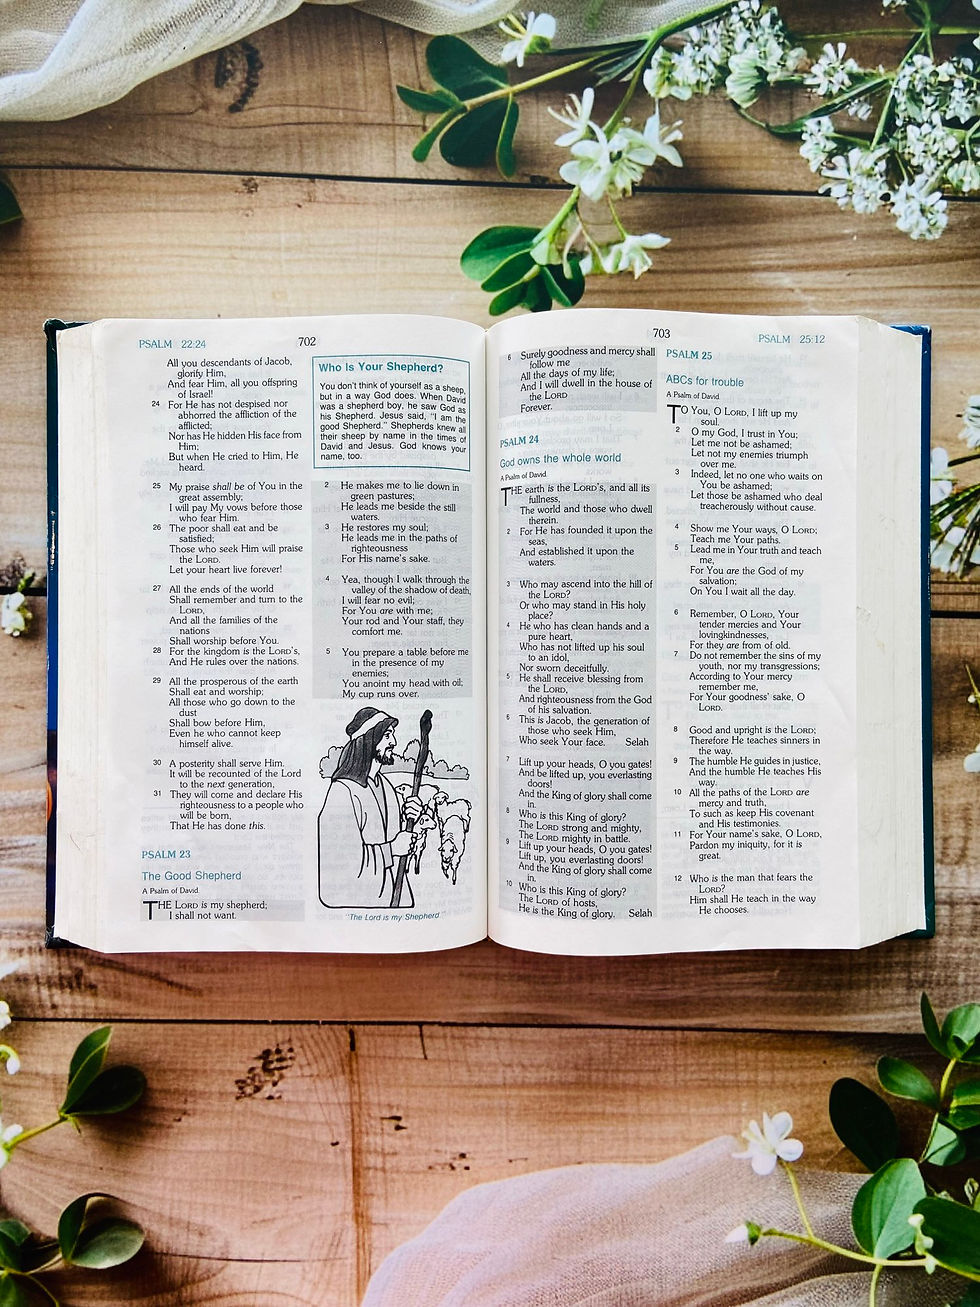 PSALM 22:24
702
All you descendants of Jacob,
glorify Him,
And fear Him, all you offspring
of Israel!
24 For He has not despised nor
abhorred the affliction of the
afflicted;
Nor has He hidden His face from
Him;
But when He cried to Him, He
heard.
25 My praise shall be of You in the
great assembly;
I will pay My vows before those
who fear Him.
26 The poor shall eat and be
satisfied;
Those who seek Him will praise
the LORD.
Let your heart live forever!
27 All the ends of the world
Shall remember and turn to the
LORD,
And all the families of the
nations
Shall worship before You.
28 For the kingdom is the LORD's,
And He rules over the nations.
29 All the prosperous of the earth
Shall eat and worship;
All those who go down to the
dust
Shall bow before Him,
Even he who cannot keep
himself alive.
30 A posterity shall serve Him.
It will be recounted of the Lord
to the next generation,
31 They will come and declare His
righteousness to a people who
will be born,
That He has done this.
PSALM 23
The Good Shepherd
A Psalm of David
THE LORD is my shepherd;
I shall not want.
Who Is Your Shepherd?
You don't think of yourself as a sheep,
but in a way God does. When David
was a shepherd boy, he saw God as
his Shepherd. Jesus said, "I am the
good Shepherd." Shepherds knew all
their sheep by name in the times of
David and Jesus. God knows your
name, too.
2 He makes me to lie down in
green pastures;
He leads me beside the still
waters.
3 He restores my soul;
He leads me in the paths of
righteousness
For His name's sake.
4 Yea, though I walk through the
valley of the shadow of death,
I will fear no evil;
For You are with me;
Your rod and Your staff, they
comfort me.
5 You prepare a table before me
in the presence of my
enemies;
You anoint my head with oil;
My cup runs over.
"The Lord is my Shepherd
703
PSALM 25:12
6 Surely goodness and mercy shall
follow me
All the days of my life;
And I will dwell in the house of
the LORD
Forever.
PSALM 24
God owns the whole world
A Psalm of David
THE earth is the LORD's, and all its
fullness,
The world and those who dwell
therein.
2 For He has founded it upon the
seas,
And established it upon the
waters.
3 Who may ascend into the hill of
the LORD?
Or who may stand in His holy
place?
4 He who has clean hands and a
pure heart,
Who has not lifted up his soul
to an idol,
Nor sworn deceitfully.
5 He shall receive blessing from
the LORD,
And righteousness from the God
of his salvation.
6 This is Jacob, the generation of
those who seek Him,
Who seek Your face. Selah
7 Lift up your heads, O you gates!
And be lifted up, you everlasting
doors!
And the King of glory shall come
in.
8 Who is this King of glory?
The LORD strong and mighty,
The LORD mighty in battle.
9 Lift up your heads, O you gates!
Lift up, you everlasting doors!
And the King of glory shall come
in.
10 Who is this King of glory?
The LORD of hosts,
He is the King of glory. Selah
PSALM 25
ABCs for trouble
A Psalm of David
TO You, O LORD, I lift up my
soul.
2 O my God, I trust in You;
Let me not be ashamed;
Let not my enemies triumph
over me.
3 Indeed, let no one who waits on
You be ashamed;
Let those be ashamed who deal
treacherously without cause.
4 Show me Your ways, O LORD;
Teach me Your paths.
5 Lead me in Your truth and teach
me,
For You are the God of my
salvation;
On You I wait all the day.
6 Remember, O LORD, Your
tender mercies and Your
lovingkindnesses,
For they are from of old.
7 Do not remember the sins of my
youth, nor my transgressions;
According to Your mercy
remember me,
For Your goodness' sake, O
LORD.
8 Good and upright is the LORD;
Therefore He teaches sinners in
the way.
9 The humble He guides in justice,
And the humble He teaches His
way.
10 All the paths of the LORD are
mercy and truth,
To such as keep His covenant
and His testimonies.
11 For Your name's sake, O LORD,
Pardon my iniquity, for it is
great.
12 Who is the man that fears the
LORD?
Him shall He teach in the way
He chooses.